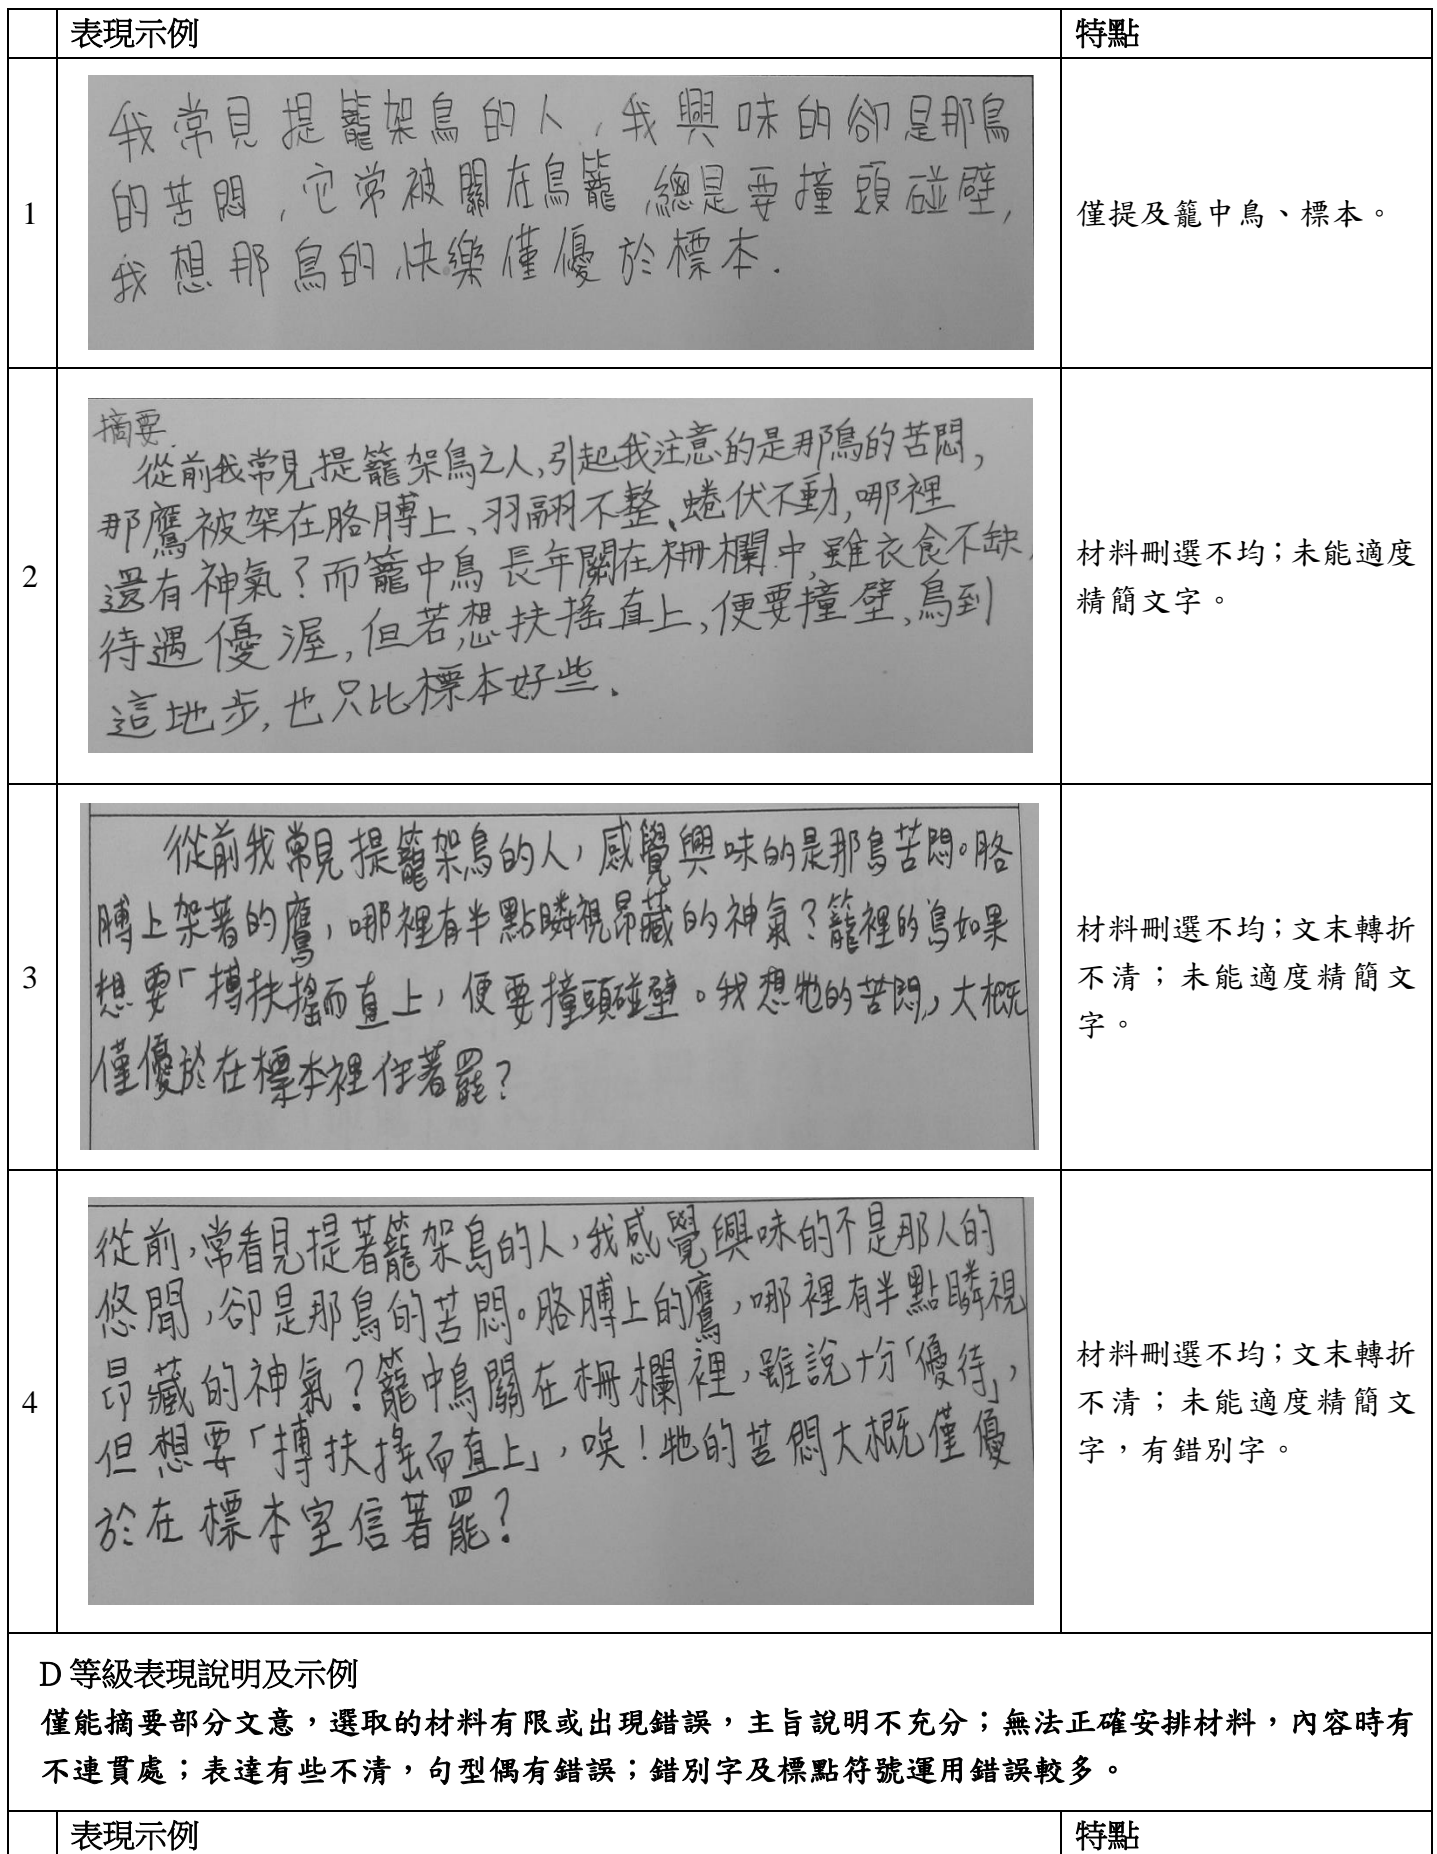 表現示例
特點
1
我常見提籠架鳥的人,我興味的卻是那鳥
的苦悶,它常被關在鳥籠,總是要撞頭碰壁,
我想那鳥的快樂僅優於標本.
僅提及籠中鳥、標本。
2
摘要.
從前我常見提籠架鳥之人,引起我注意的是那鳥的苦悶,
那鷹被架在胳膊上、羽翮不整、蜷伏不動,哪裡
還有神氣?而籠中鳥長年關在柵欄中,雖衣食不缺,
待遇優渥,但若想扶搖直上,便要撞壁,鳥到
這地步,也只比標本好些.
材料刪選不均;未能適度
精簡文字。
3
從前我常見提籠架鳥的人,感覺興味的是那鳥苦悶。胳
膊上架著的鷹,哪裡有半點瞵視昂藏的神氣?籠裡的鳥如果
想要「摶扶搖而直上,便要撞頭碰壁。我想牠的苦悶,大概
僅優於在標本裡住著罷?
材料刪選不均;文末轉折
不清;未能適度精簡文
字。
4
從前,常看見提著籠架鳥的人,我感覺興味的不是那人的
悠閒,卻是那鳥的苦悶。胳膊上的鷹,哪裡有半點瞵視
昂藏的神氣?籠中鳥關在柵欄裡,雖說十分「優待」,
但想要「摶扶搖而直上」,唉!牠的苦悶大概僅優
於在標本室信著罷?
材料刪選不均;文末轉折
不清;未能適度精簡文
字,有錯別字。
D 等級表現說明及示例
僅能摘要部分文意,選取的材料有限或出現錯誤,主旨說明不充分;無法正確安排材料,內容時有
不連貫處;表達有些不清,句型偶有錯誤;錯別字及標點符號運用錯誤較多。
表現示例
特點